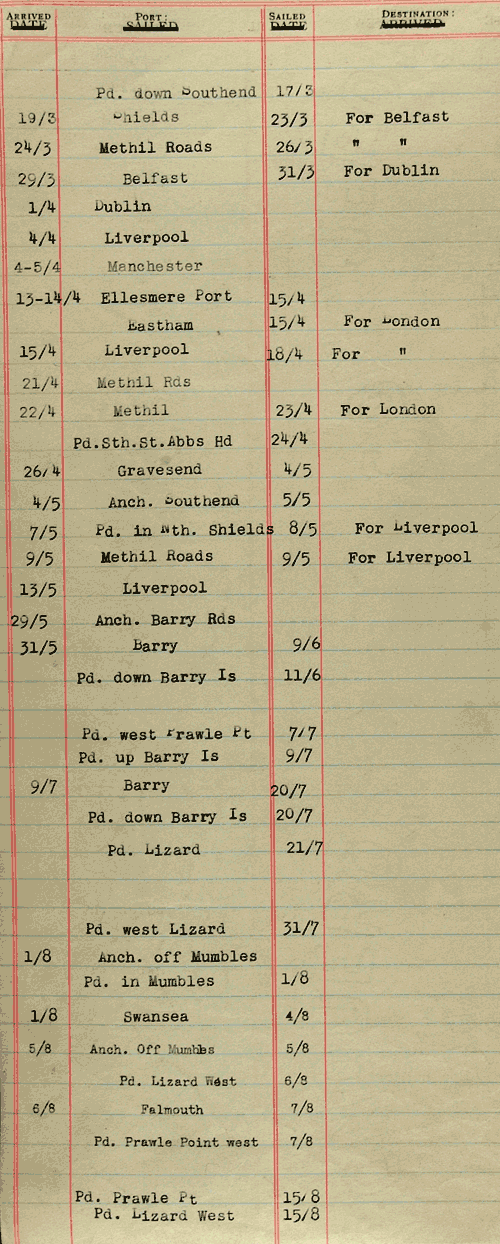 ARRIVED DATE PORT: SAILED SAILED DATE DESTINATION: ARRIVED
Pd. down Southend 17/3
19/3 Shields 23/3 For Belfast
24/3 Methil Roads 26/3 " "
29/3 Belfast 31/3 For Dublin
1/4 Dublin
4/4 Liverpool
4-5/4 Manchester
13-14/4 Ellesmere Port 15/4
Eastham 15/4 For London
15/4 Liverpool 18/4 For "
21/4 Methil Rds
22/4 Methil 23/4 For London
Pd.Sth.St.Abbs Hd 24/4
26/4 Gravesend 4/5
4/5 Anch. Southend 5/5
7/5 Pd. in Nth. Shields 8/5 For Liverpool
9/5 Methil Roads 9/5 For Liverpool
13/5 Liverpool
29/5 Anch. Barry Rds
31/5 Barry 9/6
Pd. down Barry Is 11/6
Pd. west Prawle Pt 7/7
Pd. up Barry Is 9/7
9/7 Barry 20/7
Pd. down Barry Is 20/7
Pd. Lizard 21/7
Pd. west Lizard 31/7
1/8 Anch. off Mumbles
Pd. in Mumbles 1/8
1/8 Swansea 4/8
5/8 Anch. Off Mumbles 5/8
Pd. Lizard West 6/8
6/8 Falmouth 7/8
Pd. Prawle Point west 7/8
Pd. Prawle Pt 15/8
Pd. Lizard West 15/8